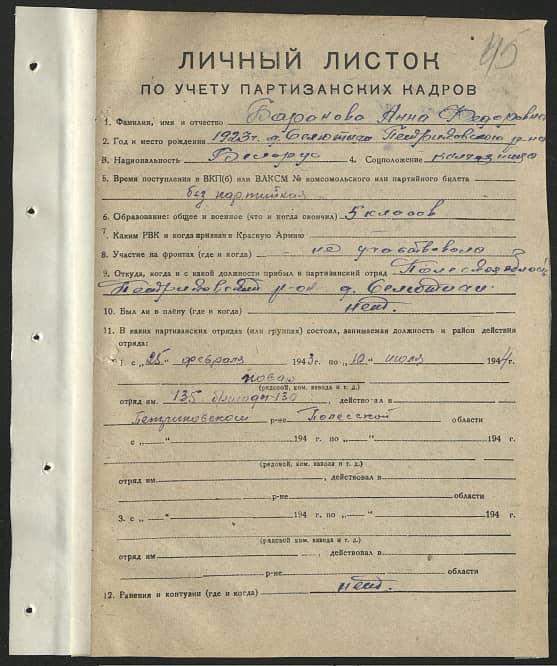 45
ЛИЧНЫЙ ЛИСТОК
ПО УЧЕТУ ПАРТИЗАНСКИХ КАДРОВ
1. Фамилия, имя и отчество Баранова Анна Федоровна
2. Год и место рождения 1923 г. д. Селютичи Петриковского р-на
3. Национальность Белорус 4. Соцположение колхозница
5. Время поступления в ВКП(б) или ВЛКСМ № комсомольского или партийного билета
без партийная
6. Образование: общее и военное (что и когда окончил) 5 классов
7. Каким РВК и когда призван в Красную Армию
8. Участие на фронтах (где и когда) не участвовала
9. Откуда, когда и с какой должности прибыл в партизанский отряд Полесская область
Петриковский р-он д. Селютичи
10. Был ли в плену (где и когда) нет.
11. В каких партизанских отрядах (или группах) состоял, занимаемая должность и район действия
отряда:
1. с „25" февраля 1943 г. по „10" июля 1944 г.
(рядовой, ком. взвода и т. д.)
отряд им. 135 бригады-130, действовал в
Петриковском р-не Полесской области
с „ " 194 г. по „ " 194
(рядовой, ком. взвода и т. д.)
отряд им. , действовал в
р-не области
3. с „ " 194 г. по „ " 194 г.
(рядовой ком. взвода и т. д.)
отряд им. , действовал в
р-не области
12. Ранения и контузии (где и когда) нет.